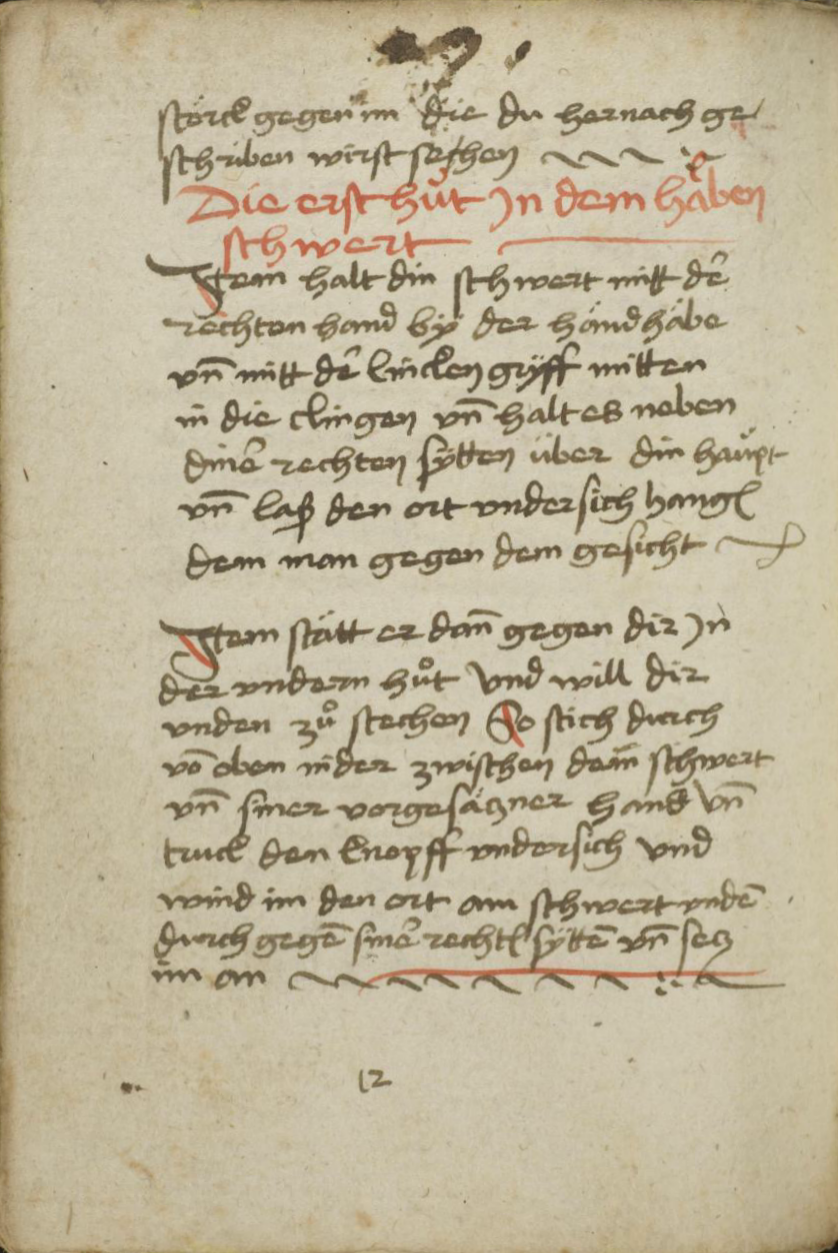 störck gegen im die du hernach ge
schriben wirst sechen
Die erst hůt Jn dem halben
schwert
Jtem halt din schwert mitt der̄
rechten hand by̎ der handhäbe
vn̄ mitt der̄ lincken gryff mitten
in die clingen vn̄ halt es neben
diner̄ rechten sytten über din haüpt
vn̄ laß den ort vndersich hangen
dem man gegen dem gesicht
Jtem stätt er dan̄ gegen dir Jn
der vndern hůt Vnd will dir
vnden zů stechen So stich durch
vō oben nider zwischen dem schwert
vn̄ siner vorgesäczner hand vn̄
truck den knopff vndersich vnd
wind im den ort am schwert vndē
durch gegē siner̄ rechten syttē vn̄ secz
im an
12